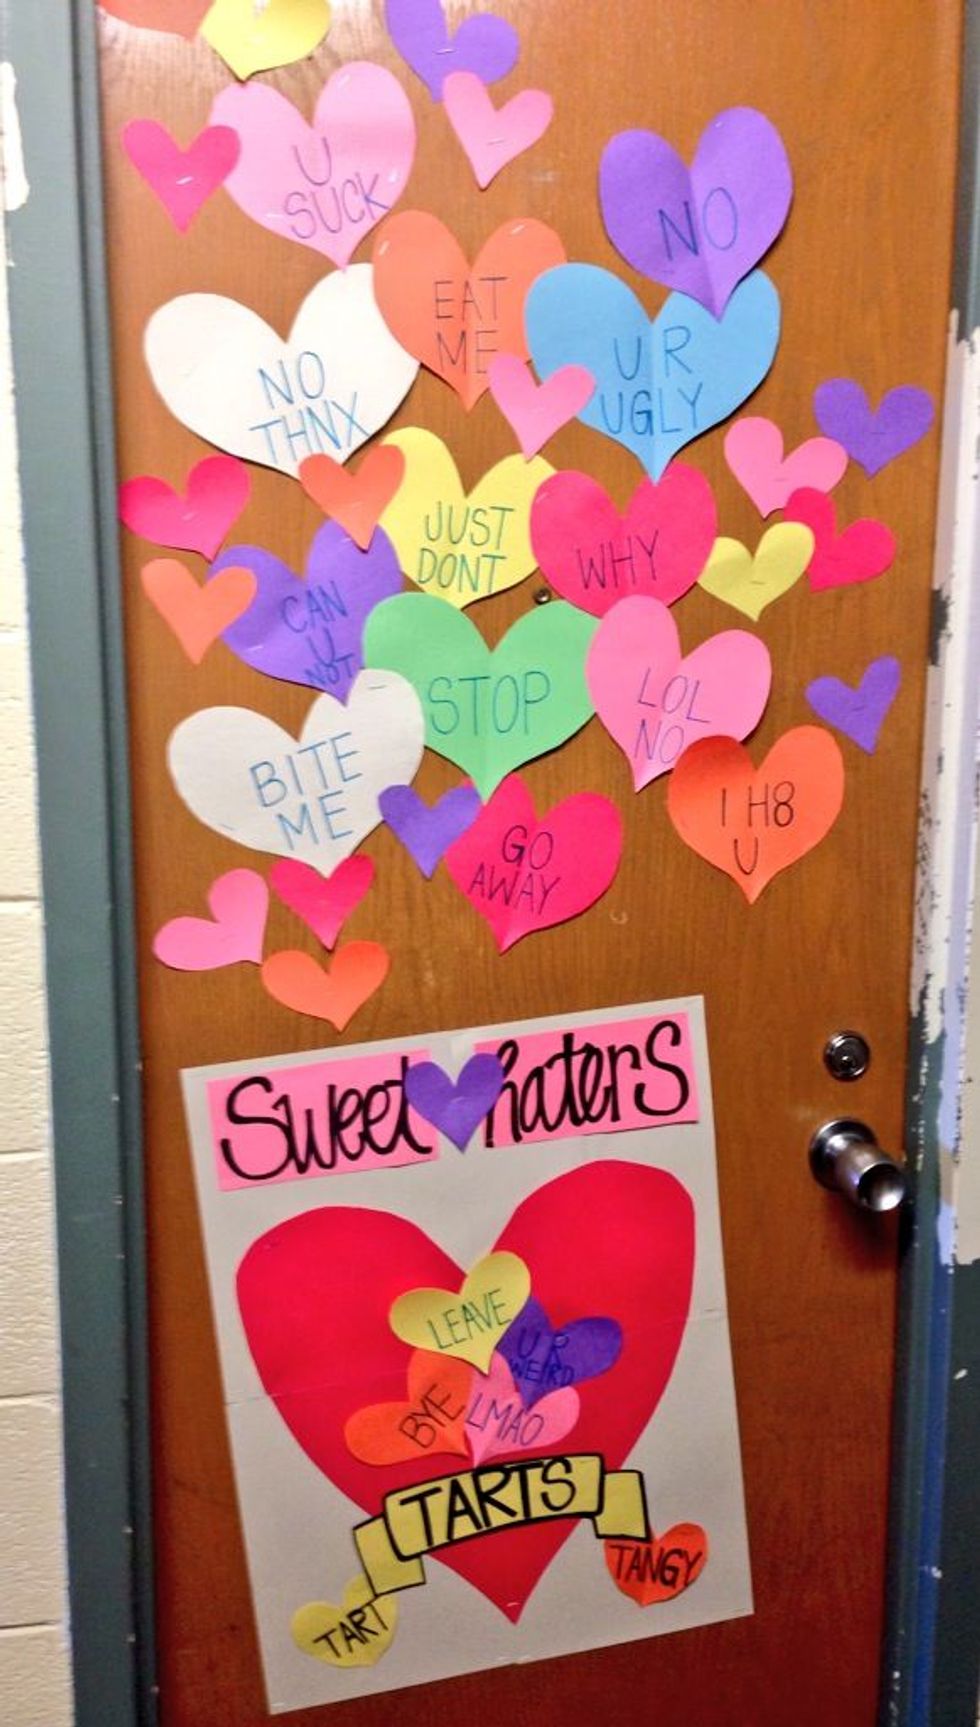 U
SUCK
NO
EAT
ME
NO
THNX
U R
UGLY
JUST
DONT
WHY
CAN
U
NOT
STOP
LOL
NO
BITE
ME
I H8
U
GO
AWAY
Sweet haters
LEAVE
U R
WEIRD
BYE
LMAO
TARTS
TANGY
TART